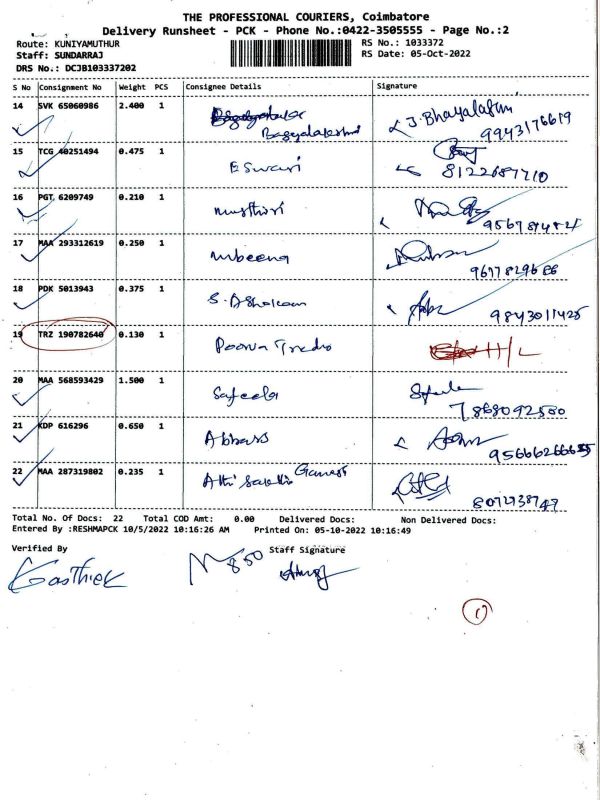 THE PROFESSIONAL COURIERS, Coimbatore
Delivery Runsheet - PCK - Phone No.:0422-3505555 - Page No.:2
Route: KUNIYAMUTHUR RS No.: 1033372
Staff: SUNDARRAJ RS Date: 05-Oct-2022
DRS No.: DCJB103337202
S No Consignment No Weight PCS Consignee Details Signature
14 SVK 65060986 2.400 1 J. Bhagyalaxmi
9943176619
15 TCG 40251494 0.475 1 Eswari
8122687710
16 PGT 6209749 0.210 1
17 MAA 293312619 0.250 1 Mbeena
18 PDK 5013943 0.375 1 S. Ashokan
9843011425
19 TRZ 190782640 0.130 1 Poorva Trades H/L
20 MAA 568593429 1.500 1 Safeela
7868092550
21 KDP 616296 0.650 1 Abbas
22 MAA 287319802 0.235 1 Athi Sakthi Ganesh
Total No. Of Docs: 22 Total COD Amt: 0.00 Delivered Docs: Non Delivered Docs:
Entered By :RESHMAPCK 10/5/2022 10:16:26 AM Printed On: 05-10-2022 10:16:49
Verified By Staff Signature
Karthick
850
1